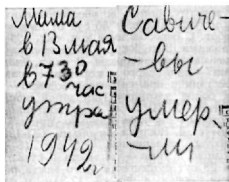 Мама
в 13 мая
в 730
час
утра
1942 г
Савиче-
-вы
умер
-ли